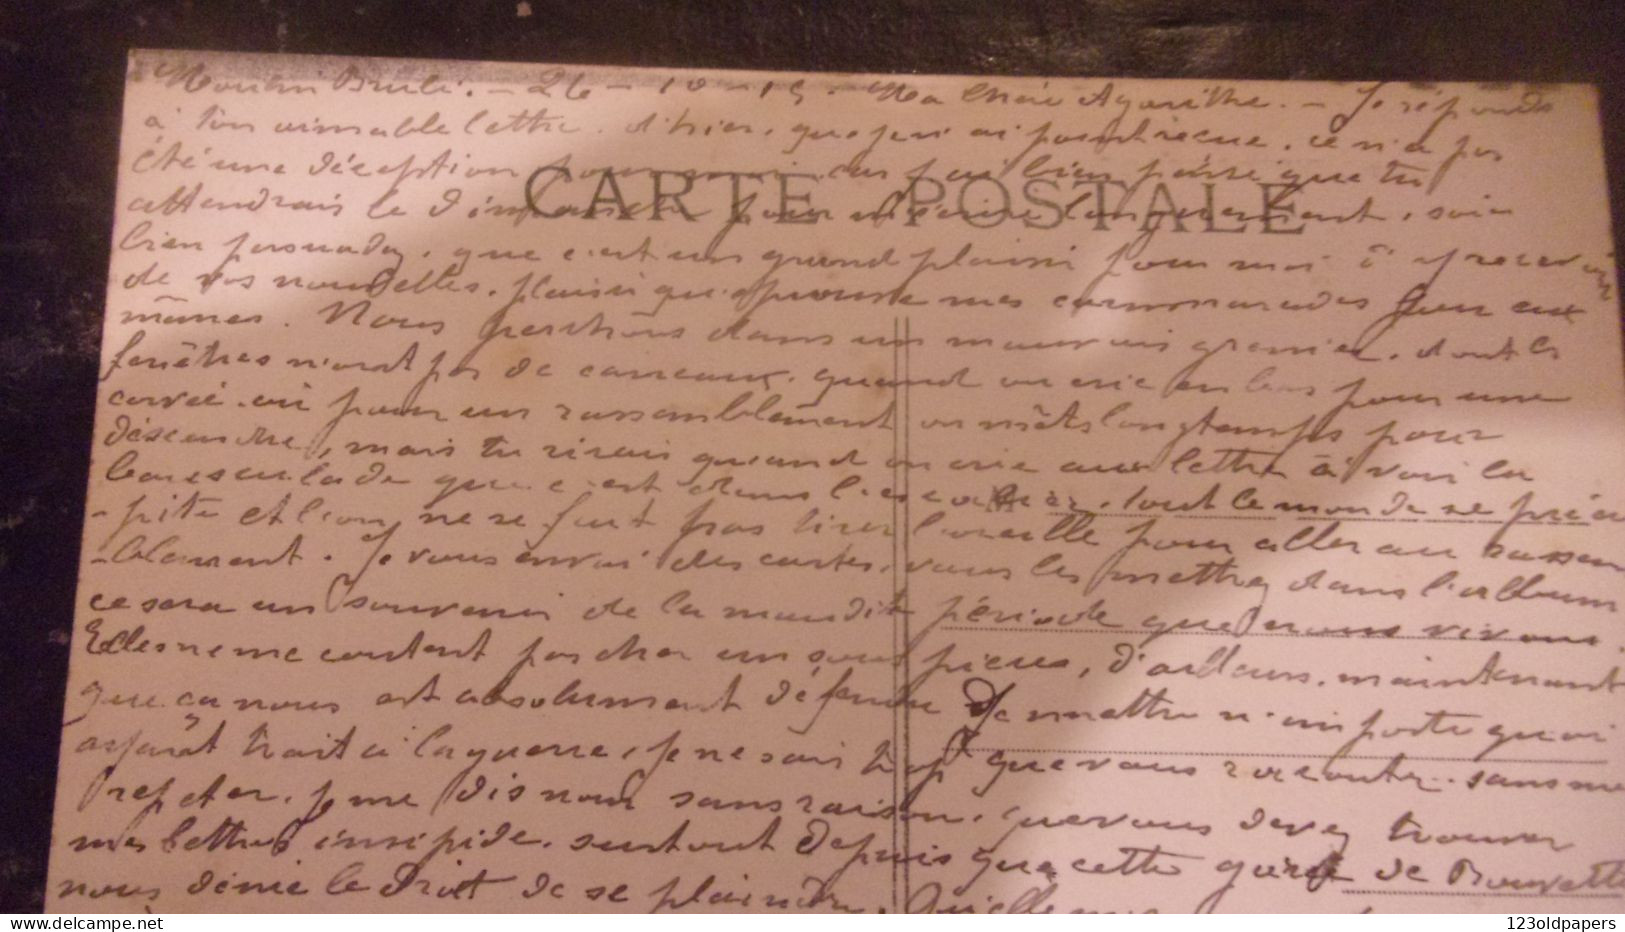 Moulin Brulé. - 26 - 10 - 15. Ma Chère Agarithe. - Je réponds
à ton aimable lettre. d'hier, que j'en ai point reçue, ce n'a pas
été une déception pour moi, car j'ai bien pensé que tu
CARTE POSTALE
attendrais le dimanche pour m'écrire longuement, soiez
bien persuadez, que c'est un grand plaisir pour moi à recevoir
de vos nouvelles, plaisir qu'éprouve mes cammarades pour eux
mêmes. Nous perchons dans un mauvais grenier, dont les
fenêtres n'ont pas de carreaux, quand on crie en bas pour une
corvée ou pour un rassemblement on mêts longtemps pour
désendre, mais tu rirais quand on crie aux lettre à voir la
bousculade que c'est dans l'escalier, tout le monde se préci
-pite et l'on ne se fait pas tirer l'oreille pour aller au rassem
-blement. Je vous envoi des cartes, vous les mettrez dans l'album
ce sera un souvenir de la maudite période que nous vivons.
Elles ne me coutent pas cher un sous pièce, d'ailleurs, maintenant
que ça nous est absolument défendu de mettre n'importe quoi
ayant trait à la guerre, je ne sais trop que vous raconter. sans me
repéter, je me dis non sans raison, que vous devez trouver
mes lettres insipide, surtout depuis que cette de Bouvette
nous dénie le droit de se plaindre, Quelle
123oldpapers